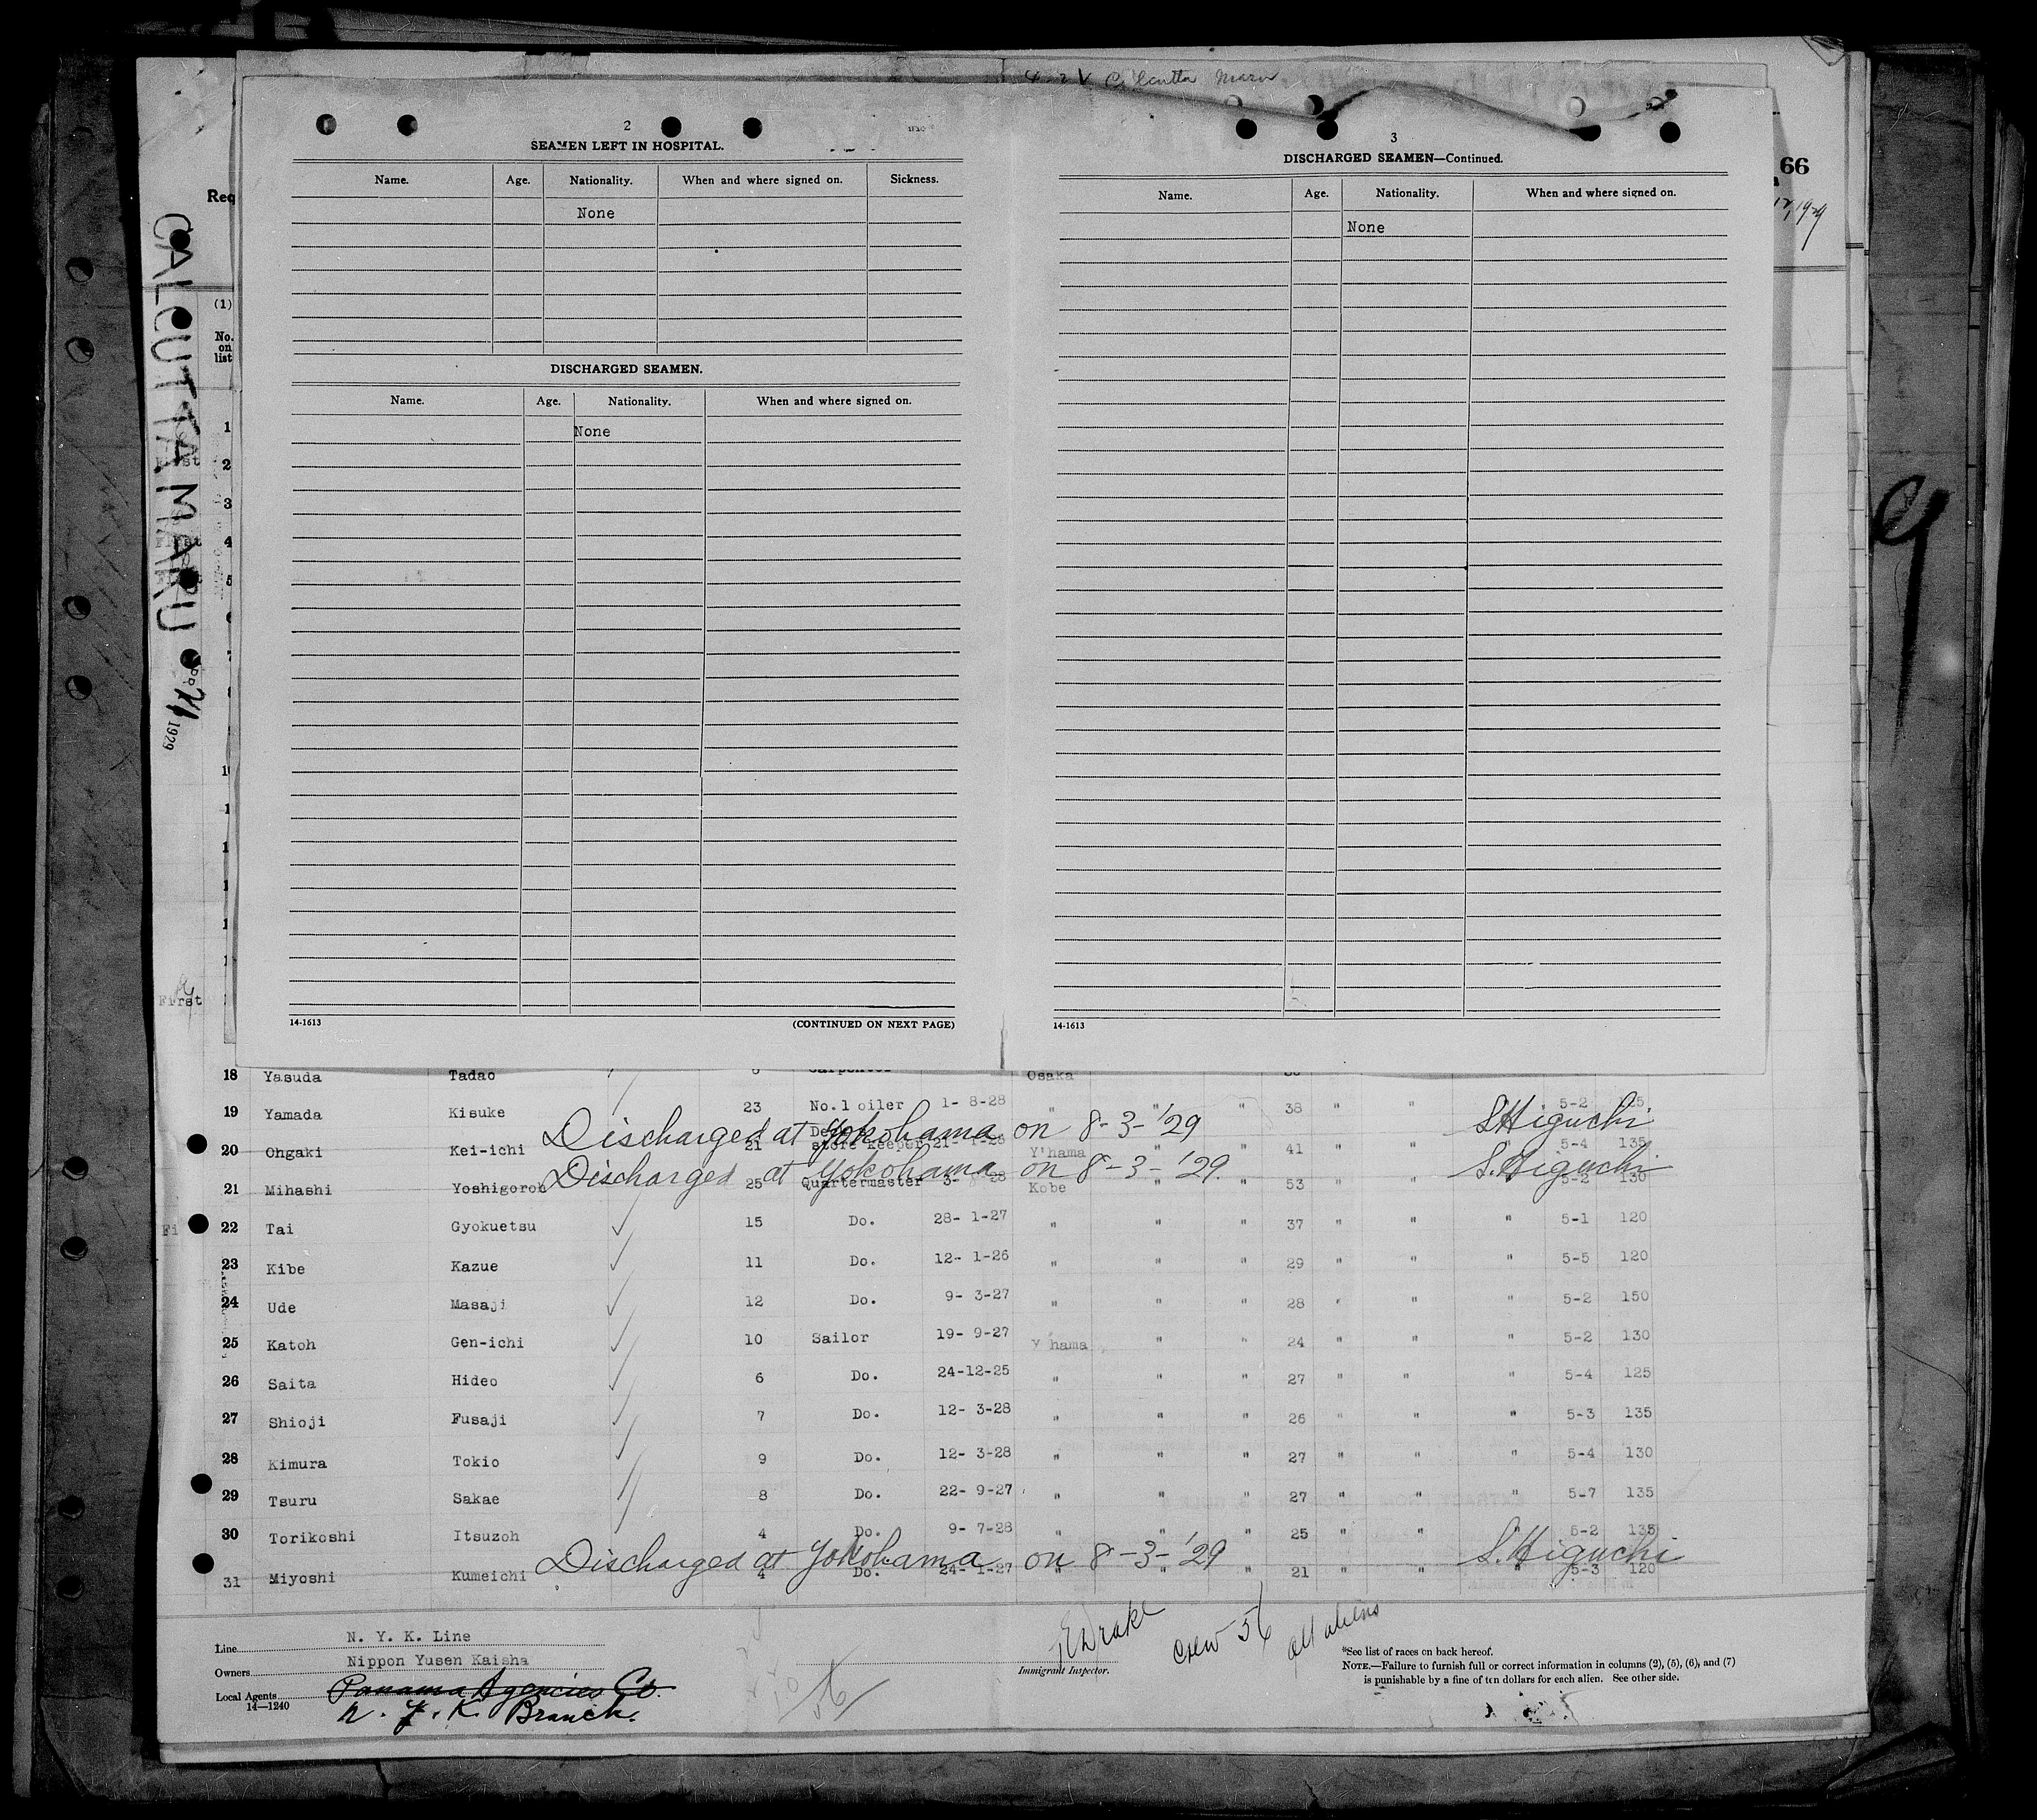 Calcutta Maru
2
SEAMEN LEFT IN HOSPITAL.
Name. Age. Nationality. When and where signed on. Sickness.
None
DISCHARGED SEAMEN.
Name. Age. Nationality. When and where signed on.
None
14-1613 (CONTINUED ON NEXT PAGE)
3
DISCHARGED SEAMEN—Continued.
Name. Age. Nationality. When and where signed on.
None
14-1613
66
Req
CALCUTTA MARU
1929
(1)
No.
on
list
1
2
3
4
5
First
18 Yasuda Tadao Osaka
19 Yamada Kisuke 23 No.1 oiler 1- 8-28 " " " 38 " " 5-2
Discharged at Yokohama on 8-3-'29 S.Higuchi
20 Ohgaki Kei-ichi 21 store keeper Y'hama " " 41 " " 5-4 135
Discharged at Yokohama on 8-3-'29. S.Higuchi
21 Mihashi Yoshigoroh 25 Quartermaster Kobe " " 53 " " 5-2 130
22 Tai Gyokuetsu 15 Do. 28- 1-27 " " " 37 " " " 5-1 120
23 Kibe Kazue 11 Do. 12- 1-26 " " " 29 " " " 5-5 120
24 Ude Masaji 12 Do. 9- 3-27 " " " 28 " " " 5-2 150
25 Katoh Gen-ichi 10 Sailor 19- 9-27 Y'hama " " 24 " " " 5-2 130
26 Saita Hideo 6 Do. 24-12-25 " " " 27 " " " 5-4 125
27 Shioji Fusaji 7 Do. 12- 3-28 " " " 26 " " " 5-3 135
28 Kimura Tokio 9 Do. 12- 3-28 " " " 27 " " " 5-4 130
29 Tsuru Sakae 8 Do. 22- 9-27 " " " 27 " " " 5-7 135
30 Torikoshi Itsuzoh 4 Do. 9- 7-28 " " " 25 " " 5-2 135
Discharged at Yokohama on 8-3-'29 S.Higuchi
31 Miyoshi Kumeichi 4 Do. 24- 1-27 " " " 21 " " 5-3 120
Line N. Y. K. Line
Owners Nippon Yusen Kaisha
Local Agents Panama Agencies Co.
14—1240 N. Y. K. Branch.
56
Drake
Immigrant Inspector.
Crew 56
all aliens
*See list of races on back hereof.
NOTE.—Failure to furnish full or correct information in columns (2), (5), (6), and (7)
is punishable by a fine of ten dollars for each alien. See other side.
9